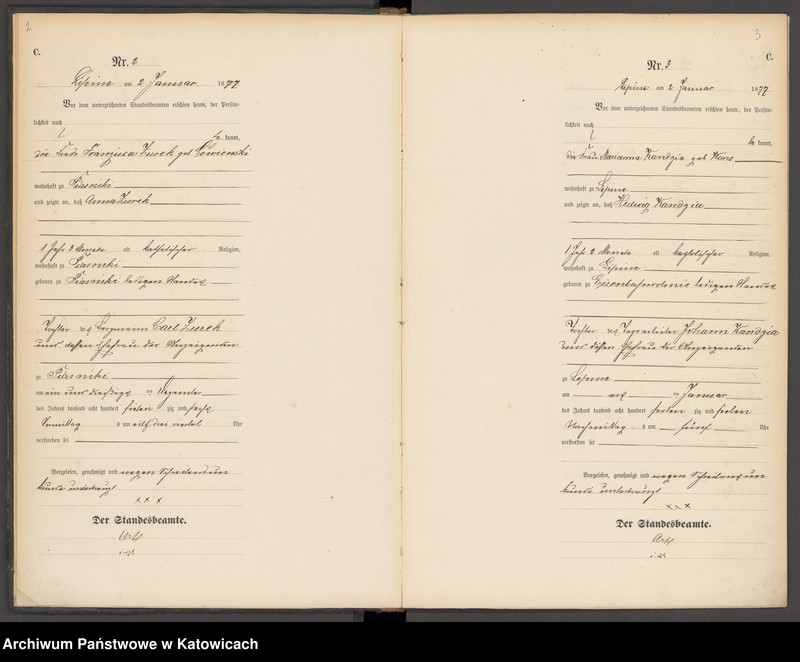 2
C.
Nr. 2
Lipine am 2 Januar 1877
Vor dem unterzeichneten Standesbeamten erschien heute, der Persön-
lichkeit nach
be kannt,
die Frau Franziska Zurek geb
wohnhaft zu Piasniki
und zeigte an, daß Anna Zurek
1 Jahr 3 Monate alt katholischer Religion,
wohnhaft zu Piasniki
geboren zu Piasniki ledigen Standes
Tochter des Bergmann Carl Zurek
und dessen Ehefrau der Anzeigenden
zu Piasniki
am ein und dreißigs ten Dezember
des Jahres tausend acht hundert sieben zig und sechs
Vormittag s um elf drei viertel Uhr
verstorben sei
Vorgelesen, genehmigt und wegen Schreibensun
kunde unterkreuzt
x x x
Der Standesbeamte.
3
C.
Nr. 3
Lipine am 2 Januar 1877
Vor dem unterzeichneten Standesbeamten erschien heute, der Persön-
lichkeit nach
be kannt,
die Frau Marianna Kandzia geb
wohnhaft zu Lipine
und zeigte an, daß Hedwig Kandzia
1 Jahr 2 Monate alt katholischer Religion,
wohnhaft zu Lipine
geboren zu ledigen Standes
Tochter des Tagearbeiter Johann Kandzia
und dessen Ehefrau der Anzeigenden
zu Lipine
am ers ten Januar
des Jahres tausend acht hundert sieben zig und sieben
Nachmittag s um fünf Uhr
verstorben sei
Vorgelesen, genehmigt und wegen Schreibensun
kunde unterkreuzt
x x x
Der Standesbeamte.
Archiwum Państwowe w Katowicach